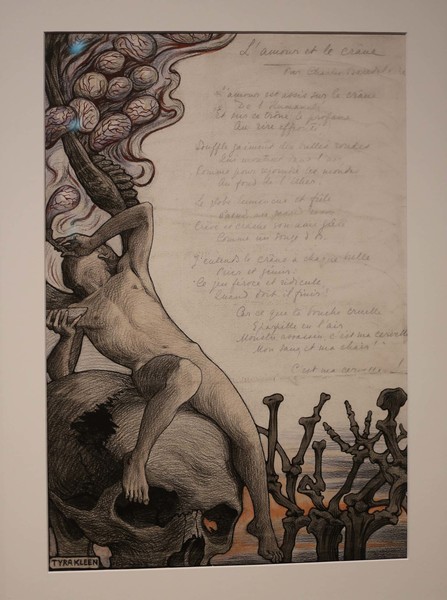 L'amour et le crâne
Par Charles
L'amour est assis sur le crâne
De l'Humanité
Et sur ce trône le profane
Au rire effronté
Souffle gaiment des bulles rondes
Qui montent dans l'air
Comme pour rejoindre les mondes
Au fond de l'éther
Le globe lumineux et frêle
Prend un grand essor
Crève et crache son âme grêle
Comme un songe d'or.
J'entends le crâne à chaque bulle
Prier et gémir:
Ce jeu féroce et ridicule
Quand doit il finir?
Car ce que ta bouche cruelle
Eparpille en l'air
Monstre assassin, c'est ma cervelle
Mon sang et ma chair!"
C'est ma
TYRA KLEEN